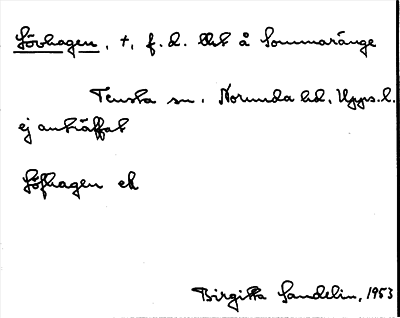 Lövhagen, †, f.d. lht å Sommaränge
Tensta sn. Norunda hd, Upps.l.
ej anträffat
Löfhagen ek
Birgitta Sandelin, 1953